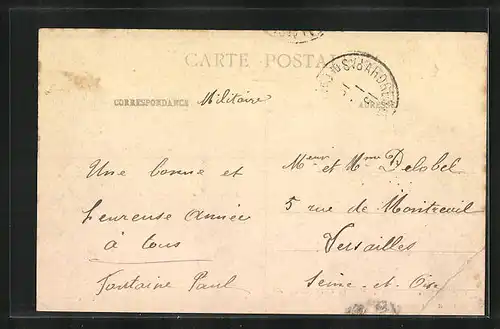 CARTE POSTALE
CORRESPONDANCE Militaire
ADRESSE
Une bonne et
heureuse année
à tous
Fontaine Paul
Meur et Mme Delobel
5 rue de Montreuil
Versailles
Seine-et-Oise